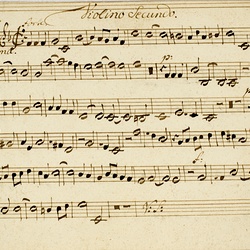 Violino Secundo.
p:
p.
f.